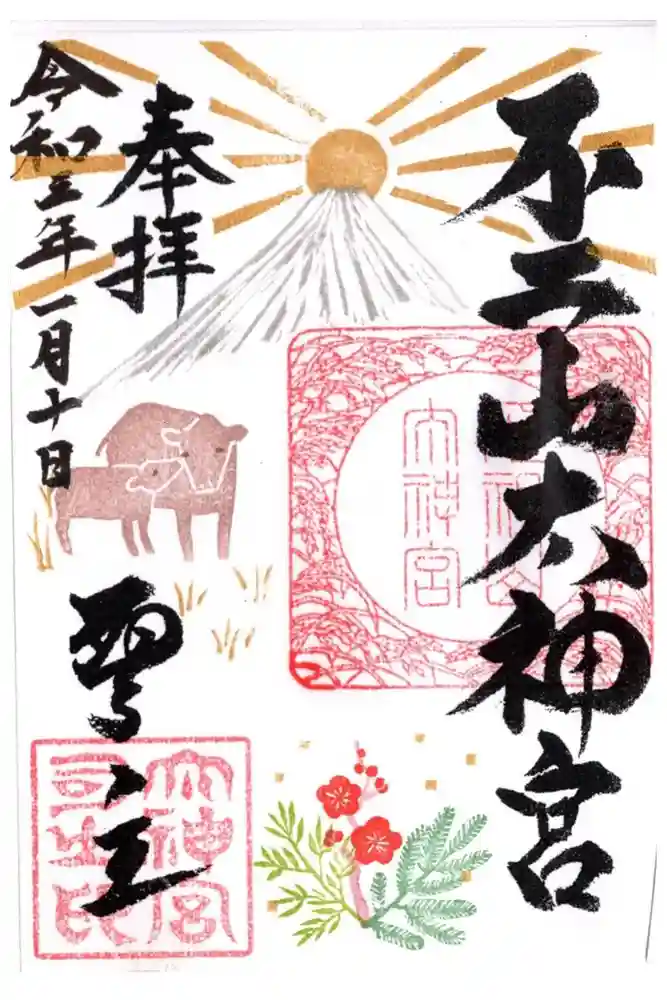 不二山大神宮
奉拝
令和三年一月十日
大神宮
大神宮
司之印